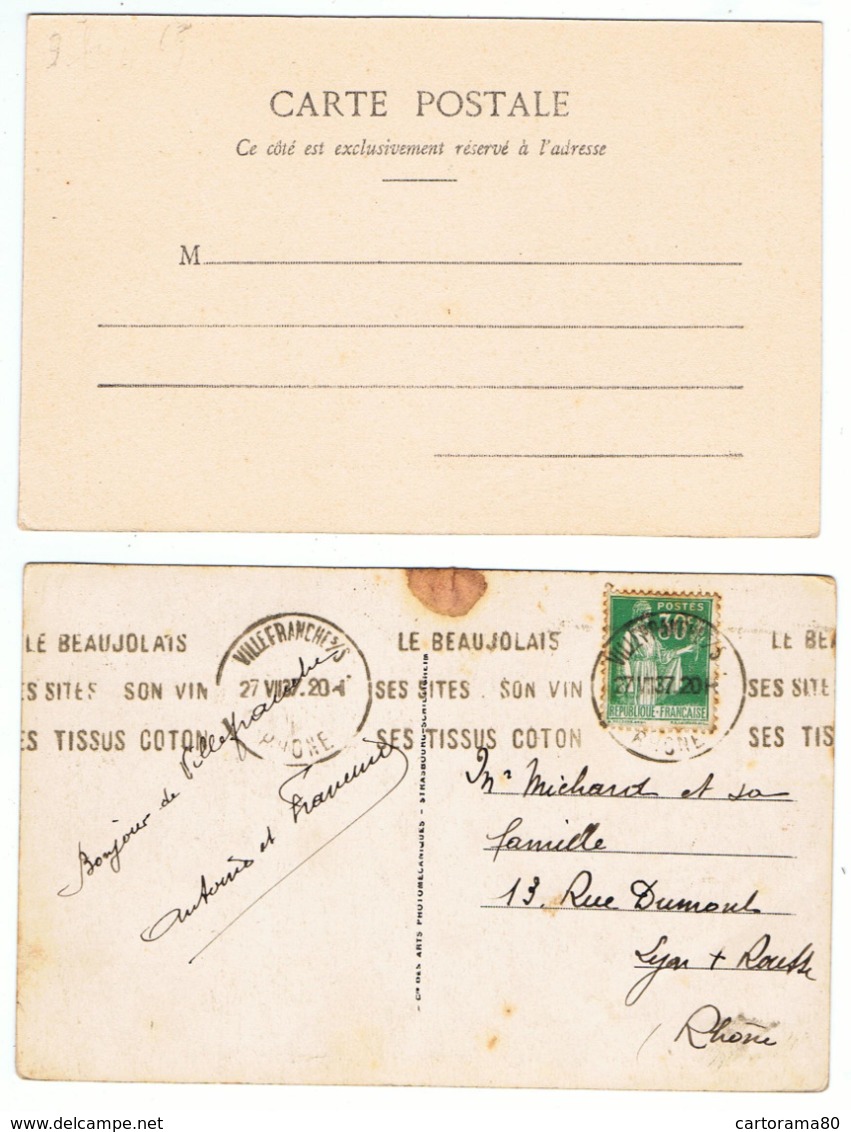 CARTE POSTALE
Ce côté est exclusivement réservé à l'adresse
M
LE BEAUJOLAIS
ES SITES SON VIN
ES TISSUS COTON
VILLEFRANCHE S/S
27 VII 37. 20
RHONE
LE BEAUJOLAIS
SES SITES . SON VIN
SES TISSUS COTON
POSTES
30c
REPUBLIQUE-FRANCAISE
VILLEFRANCHE S/S
27 VII 37. 20
RHONE
LE BEA
SES SITE
SES TIS
Bonjour de Villefranche
Antonio et
- Cie DES ARTS PHOTOMECANIQUES - STRASBOURG-SCHILTIGHEIM
Mr Michard et sa
famille
13. Rue Dumont
Lyon + Rousse
Rhône
cartorama80